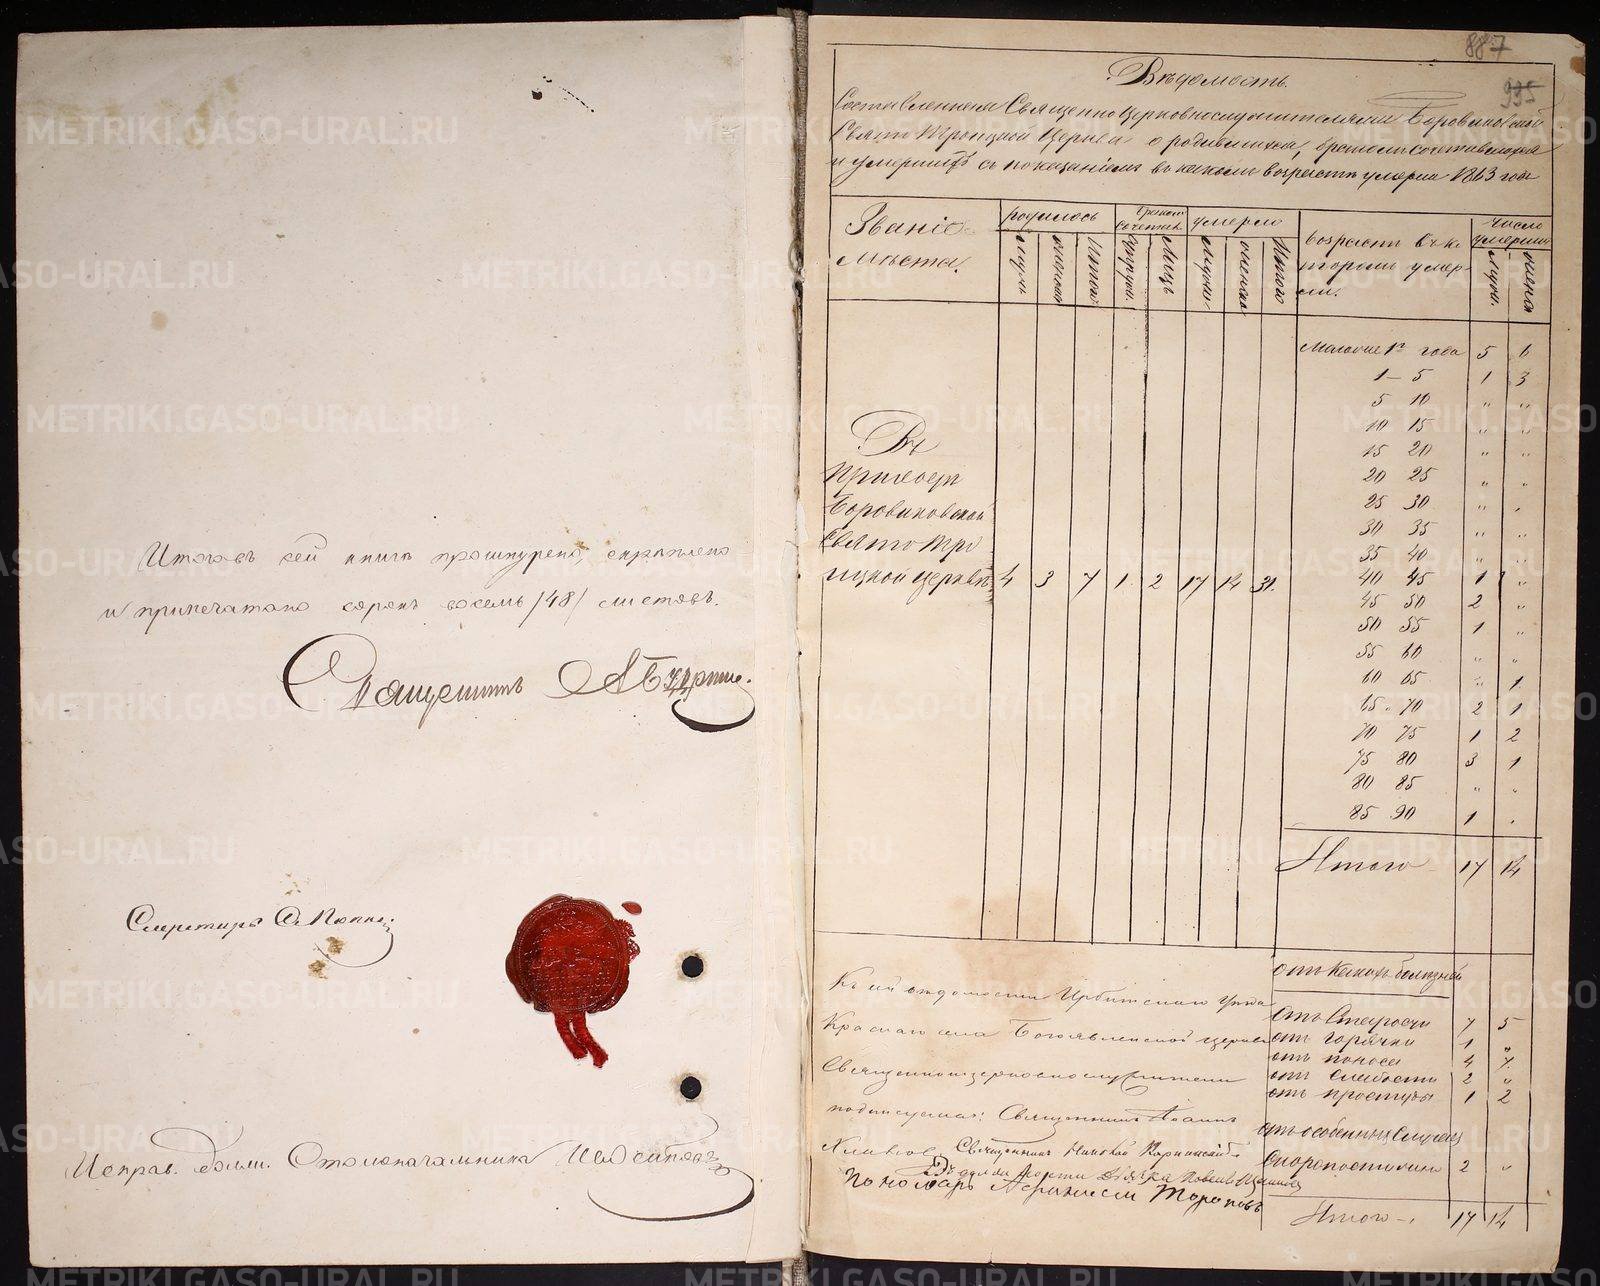 Итого въ сей книгѣ прошнурено, скрѣплено
и припечатано сорокъ восемь /48/ листовъ.
Священникъ А
Секретарь
Исправ. долж. Столоначальника
887
995
Вѣдомость.
Составленная Священноцерковнослужителями Боровиковской
Свято Троицкой Церкви о родившихся, бракомъ сочетавшихся
и умершихъ съ показаніемъ въ какомъ возрастѣ умерли 1863 года
Званіе мѣста.
родилось
бракомъ сочетав.
умерло
возрастъ въ которомъ умерли.
число умершихъ
мужч.
женска
Итого
Мужч.
женска
Итого
Мужч.
женск
Въ
Приходѣ
Боровиковской
Свято Тро
ицкой церквѣ 4 3 7 1 2 17 14 31.
Малолие 1го года 5 6
1 - 5 1 3
5 10 " "
10 15 " "
15 20 " "
20 25 " "
25 30 " "
30 35 " "
35 40 " "
40 45 1 "
45 50 2 "
50 55 1 "
55 60 " "
60 65 " 1
65 - 70 2 1
70 75 1 2
75 80 3 1
80 85 " "
85 90 1 "
Итого 17 14
отъ какихъ болѣзней
отъ Старости 7 5
отъ горячки 1 "
отъ поноса 4 7
отъ слабости 2 "
отъ простуды 1 2
отъ особенныхъ случаевъ
Скоропостижно 2 "
Итого - 17 14
Къ сей вѣдомости Ирбитскаго уѣзда
Краснаго села Богоявленской церкви
Священноцерковнослужители
подписуемся: Священникъ Іоаннъ
Священникъ Николай
Пономарь Афанасій Тороповъ
METRIKI.GASO-URAL.RU